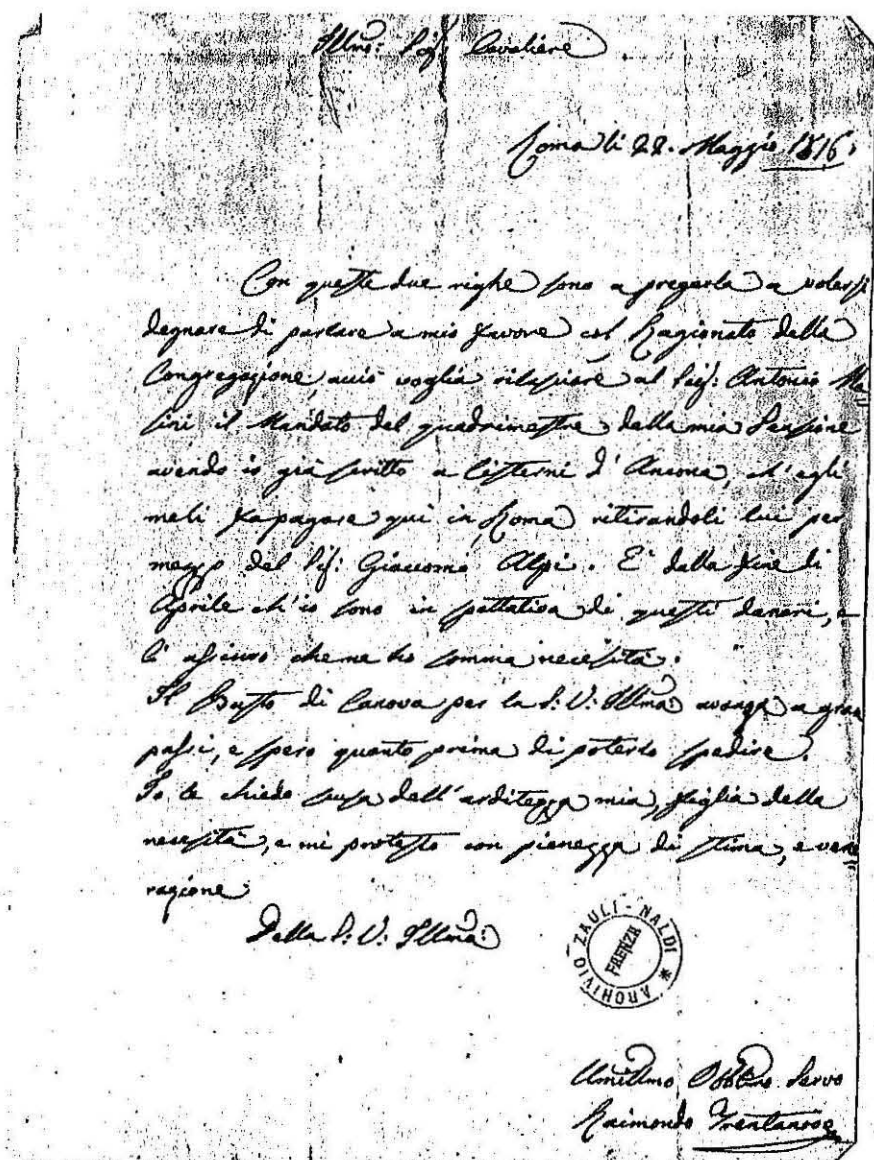 Illmo: Sig: Cavaliere
Roma li 22. Maggio 1816.
Con queste due righe sono a pregarla a volersi
degnare di parlare a mio favore col Ragionato della
Congregazione, acciò voglia rilasciare al Sig: Antonio Ma=
sini il Mandato del quadrimestre della mia Pensione
avendo io già scritto a Cisterni d'Ancona, ch'egli
meli fa pagare qui in Roma ritirandoli lui per
mezzo del Sig: Giacomo Alpi. E' dalla fine di
Aprile ch'io sono in spettativa di questi danari, e
l'assicuro che ne ho somma necessità.
Il Busto di Canova per la S: V: Illma: avanza a gran
passi, e spero quanto prima di poterlo spedire.
Io le chiedo scusa dell'arditezza mia, figlia della
necessità, e mi protesto con pienezza di stima, e vene=
razione
Della S: V: Illma:
ARCHIVIO ZAULI-NALDI *
FAENZA
Umillmo Obblmo Servo
Raimondo Trentanove